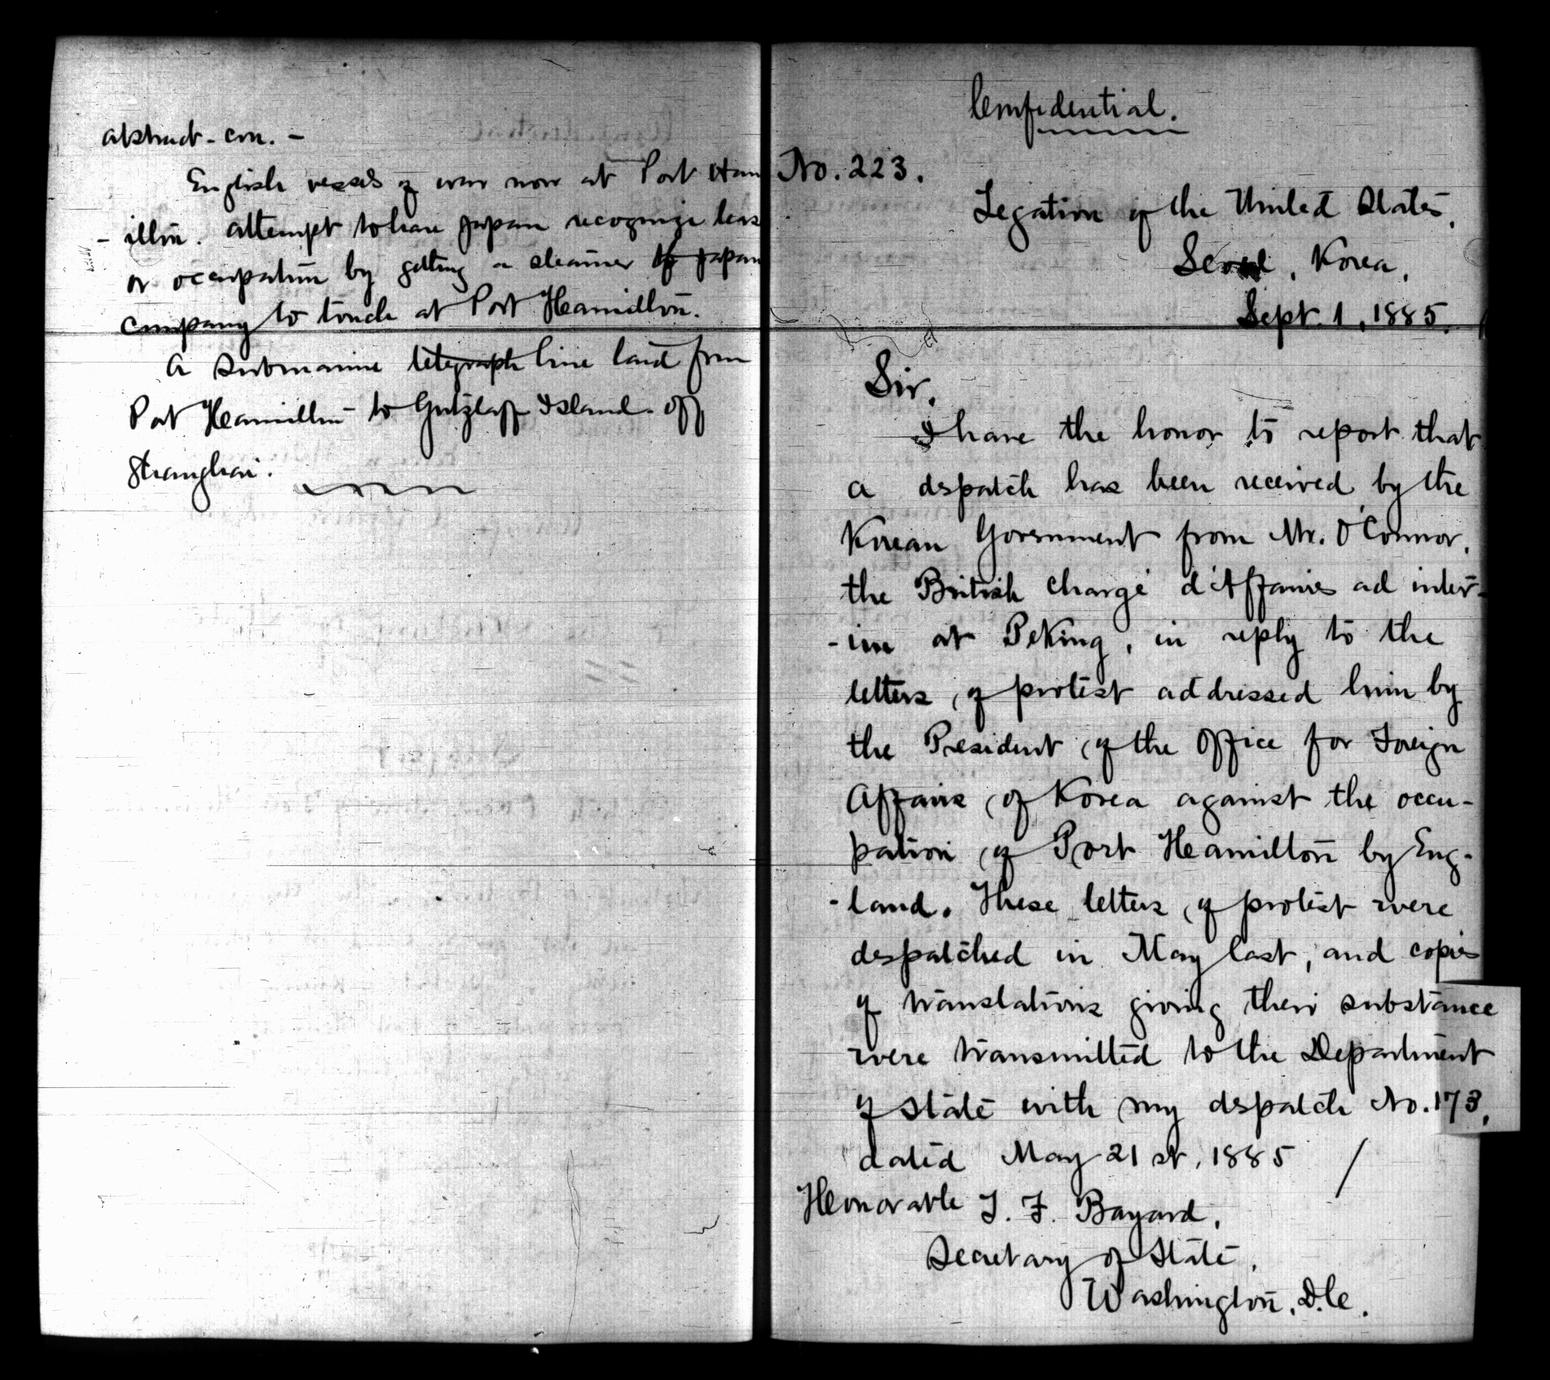 abstract - con. -
English vessels of war now at Port Ham
- ilton. Attempt to have Japan recognize leas
or occupation by getting a steamer of Japan
company to touch at Port Hamilton.
A submarine telegraph line laid from
Port Hamilton to Gutzlaff Island - off
Shanghai.
Confidential.
No. 223.
Legation of the United States,
Seoul, Korea,
Sept. 1, 1885.
Sir.
I have the honor to report that
a dispatch has been received by the
Korean Government from Mr. O'Connor,
the British chargé d'Affaires ad inter-
-im at Peking, in reply to the
letters of protest addressed him by
the President of the Office for Foreign
Affairs of Korea against the occu-
pation of Port Hamilton by Eng-
-land. These letters of protest were
despatched in May last, and copies
of translations giving their substance
were transmitted to the Department
of State with my dispatch No. 173,
dated May 21st, 1885 /
Honorable T. F. Bayard,
Secretary of State,
Washington, D.C.